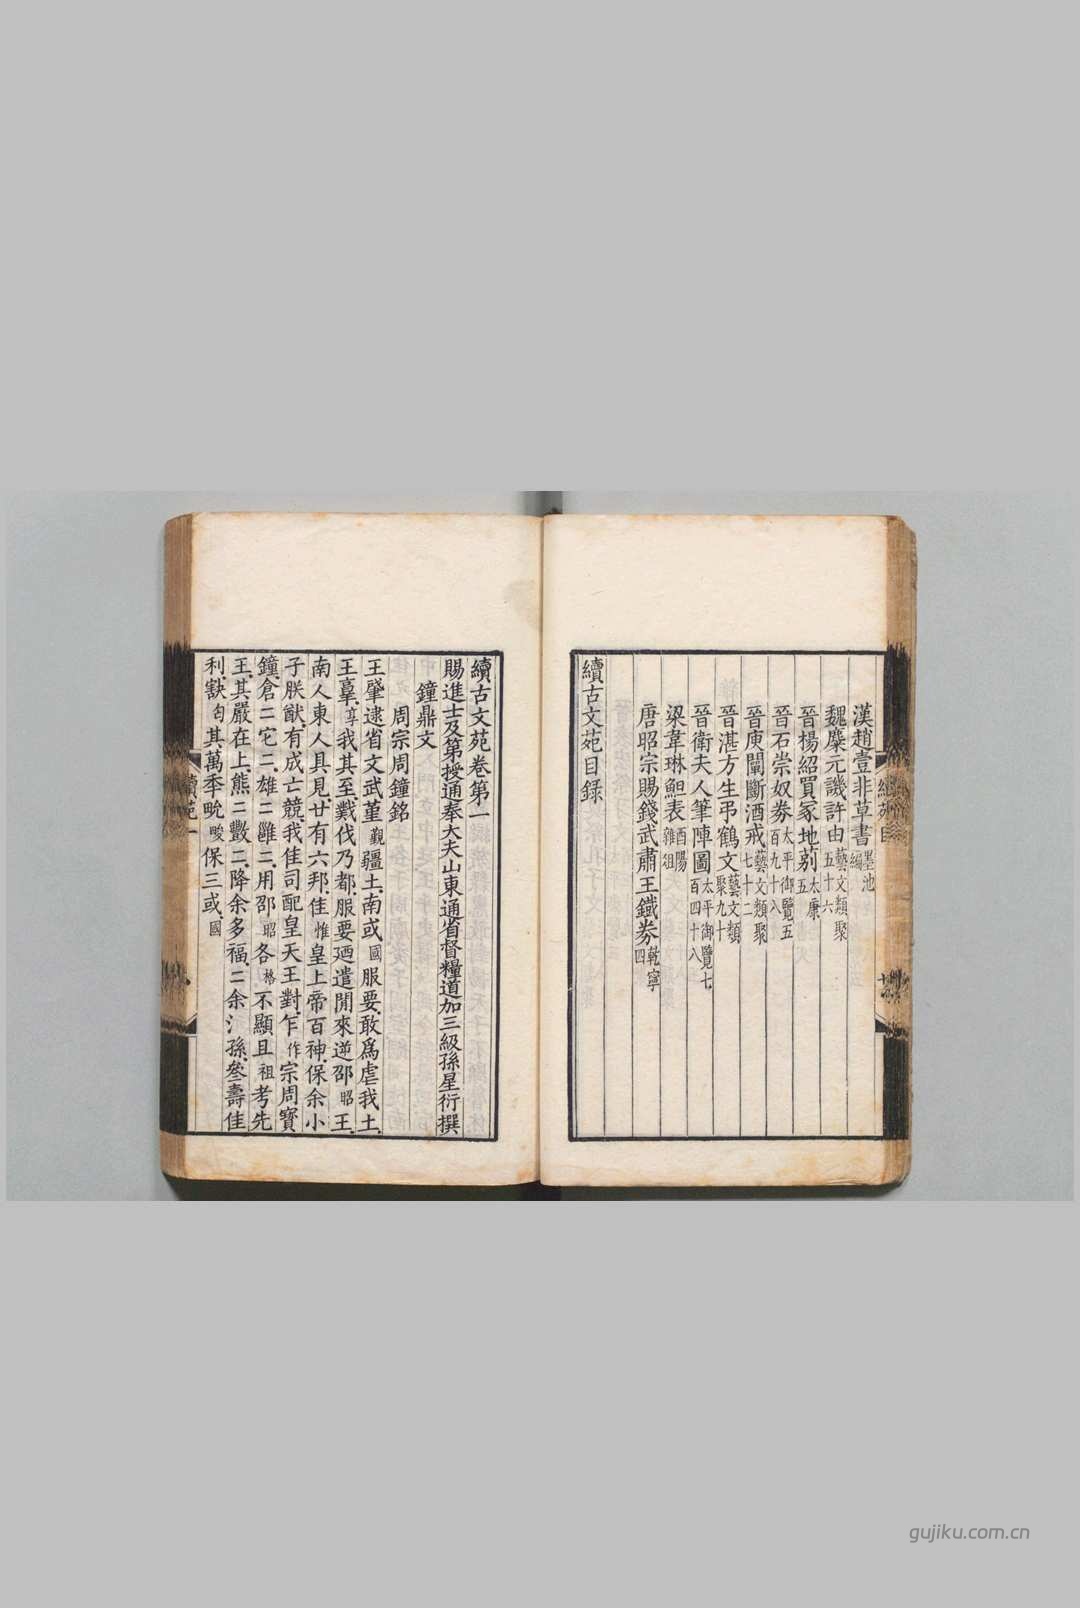 漢趙壹非草書墨池編
魏麋元譏許由藝文類聚五十六
晉楊紹買冢地莂太康五
晉石崇奴券太平御覽五百九十八
晉庾闡斷酒戒藝文類聚七十二
晉湛方生弔鶴文藝文類聚九十
晉衛夫人筆陣圖太平御覽七百四十八
梁韋琳䱇表酉陽雜俎
唐昭宗賜錢武肅王鐵券乾寧四
續古文苑目録
續古文苑卷第一
賜進士及第授通奉大夫山東通省督糧道加三級孫星衍撰
鐘鼎文
周宗周鐘銘
王肇遹省文武堇觀疆土南或國服要敢爲虐我土
王𦎫淳我其至戴伐乃都服要廼遣閒來逆邵昭王
南人東人具見廿有六邦隹惟皇上帝百神保余小
子朕猷有成亡競我隹司配皇天王對乍作宗周寶
鐘倉二它二雄二雝二用邵昭各格不顯且祖考先
王其嚴在上熊二數二降余多福二余孫參壽隹
利割匄其萬季畯保三或國
續苑一
gujiku.com.cn